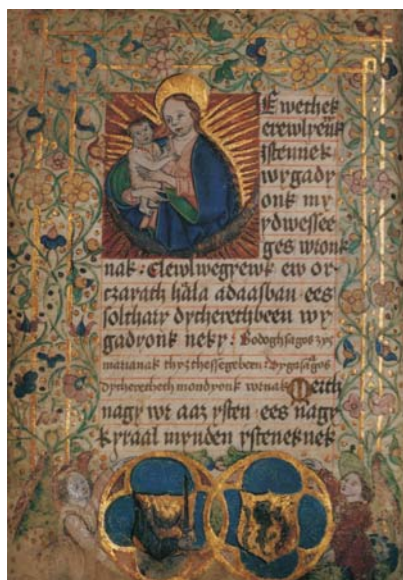 Ewethek
erewlyewnk
Istennek
wygady
onk my
ydwessee
ges wronk
nak · Elewlwegyewk ew or
czayath hala adaasban · ees
solthary dycherethbeen wy
gadyonk neky : Bodoghsagos zyz
marianak thyzthessegebeen :
dychereteth mondyonk wrnak Merth
nagy wr aaz ysten · ees nagy
kyraal mynden ysteneknek